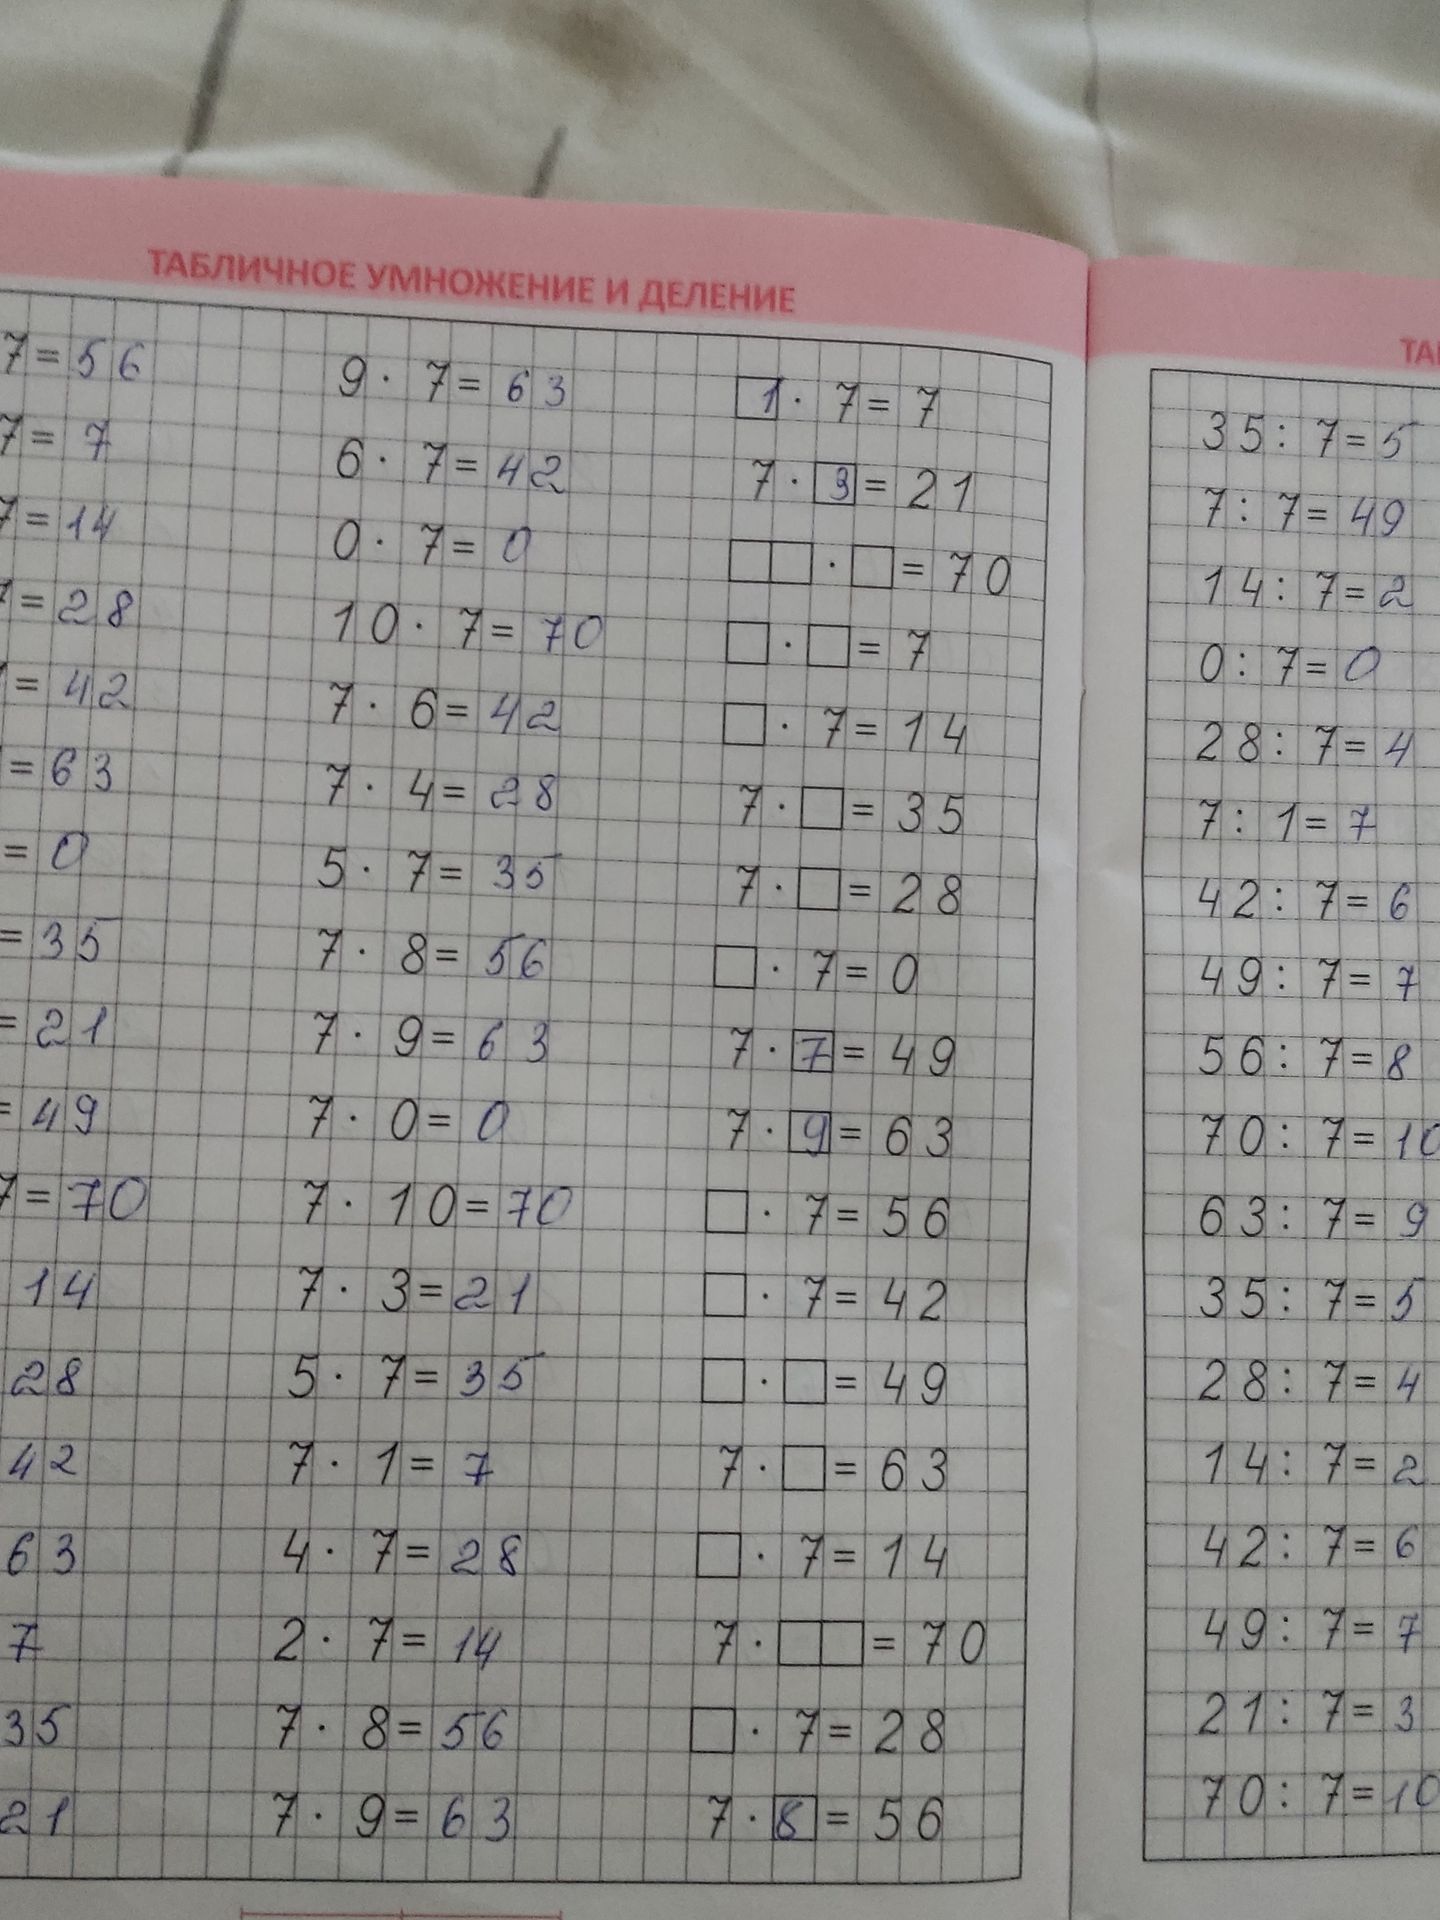 ТАБЛИЧНОЕ УМНОЖЕНИЕ И ДЕЛЕНИЕ
7 = 56
7 = 7
7 = 14
7 = 28
= 42
= 63
= 0
= 35
= 21
= 49
7 = 70
14
28
42
63
7
35
21
9 · 7 = 63
6 · 7 = 42
0 · 7 = 0
10 · 7 = 70
7 · 6 = 42
7 · 4 = 28
5 · 7 = 35
7 · 8 = 56
7 · 9 = 63
7 · 0 = 0
7 · 10 = 70
7 · 3 = 21
5 · 7 = 35
7 · 1 = 7
4 · 7 = 28
2 · 7 = 14
7 · 8 = 56
7 · 9 = 63
1 · 7 = 7
7 · 3 = 21
□□ · □ = 70
□ · □ = 7
□ · 7 = 14
7 · □ = 35
7 · □ = 28
□ · 7 = 0
7 · 7 = 49
7 · 9 = 63
□ · 7 = 56
□ · 7 = 42
□ · □ = 49
7 · □ = 63
□ · 7 = 14
7 · □□ = 70
□ · 7 = 28
7 · 8 = 56
35 : 7 = 5
7 : 7 = 49
14 : 7 = 2
0 : 7 = 0
28 : 7 = 4
7 : 1 = 7
42 : 7 = 6
49 : 7 = 7
56 : 7 = 8
70 : 7 = 10
63 : 7 = 9
35 : 7 = 5
28 : 7 = 4
14 : 7 = 2
42 : 7 = 6
49 : 7 = 7
21 : 7 = 3
70 : 7 = 10